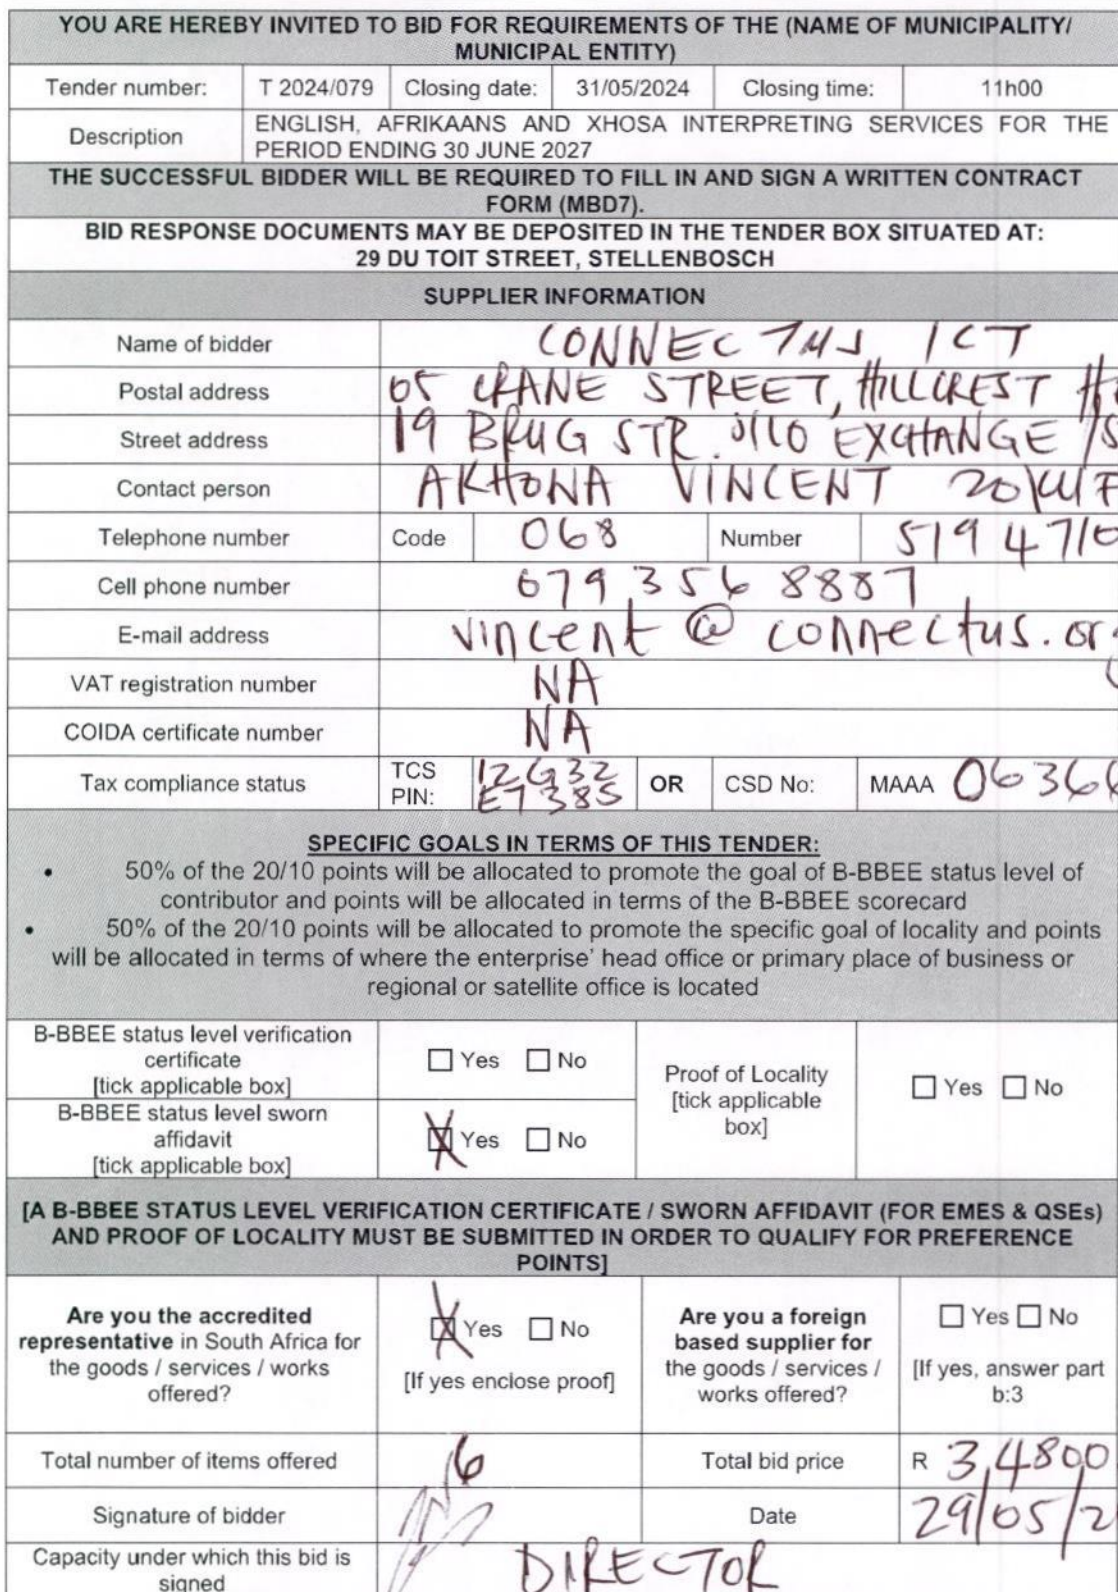 YOU ARE HEREBY INVITED TO BID FOR REQUIREMENTS OF THE (NAME OF MUNICIPALITY/
MUNICIPAL ENTITY)
Tender number: T 2024/079 Closing date: 31/05/2024 Closing time: 11h00
Description ENGLISH, AFRIKAANS AND XHOSA INTERPRETING SERVICES FOR THE
PERIOD ENDING 30 JUNE 2027
THE SUCCESSFUL BIDDER WILL BE REQUIRED TO FILL IN AND SIGN A WRITTEN CONTRACT
FORM (MBD7).
BID RESPONSE DOCUMENTS MAY BE DEPOSITED IN THE TENDER BOX SITUATED AT:
29 DU TOIT STREET, STELLENBOSCH
SUPPLIER INFORMATION
Name of bidder CONNECTUS ICT
Postal address 05 CRANE STREET, HILLCREST
Street address 19 BRUG STR. EXCHANGE
Contact person AKHONA VINCENT
Telephone number Code 068 Number 519 4710
Cell phone number 679 356 8887
E-mail address vincent@connectus.or
VAT registration number NA
COIDA certificate number NA
Tax compliance status TCS PIN: 12G32 E7385 OR CSD No: MAAA 0636
SPECIFIC GOALS IN TERMS OF THIS TENDER:
• 50% of the 20/10 points will be allocated to promote the goal of B-BBEE status level of
contributor and points will be allocated in terms of the B-BBEE scorecard
• 50% of the 20/10 points will be allocated to promote the specific goal of locality and points
will be allocated in terms of where the enterprise' head office or primary place of business or
regional or satellite office is located
B-BBEE status level verification
certificate
[tick applicable box]
Yes No
Proof of Locality
[tick applicable
box]
Yes No
B-BBEE status level sworn
affidavit
[tick applicable box]
Yes No
[A B-BBEE STATUS LEVEL VERIFICATION CERTIFICATE / SWORN AFFIDAVIT (FOR EMES & QSEs)
AND PROOF OF LOCALITY MUST BE SUBMITTED IN ORDER TO QUALIFY FOR PREFERENCE
POINTS]
Are you the accredited
representative in South Africa for
the goods / services / works
offered?
Yes No
[If yes enclose proof]
Are you a foreign
based supplier for
the goods / services /
works offered?
Yes No
[If yes, answer part
b:3
Total number of items offered 6 Total bid price R 3,4800
Signature of bidder Date 29/05/2
Capacity under which this bid is
signed
DIRECTOR